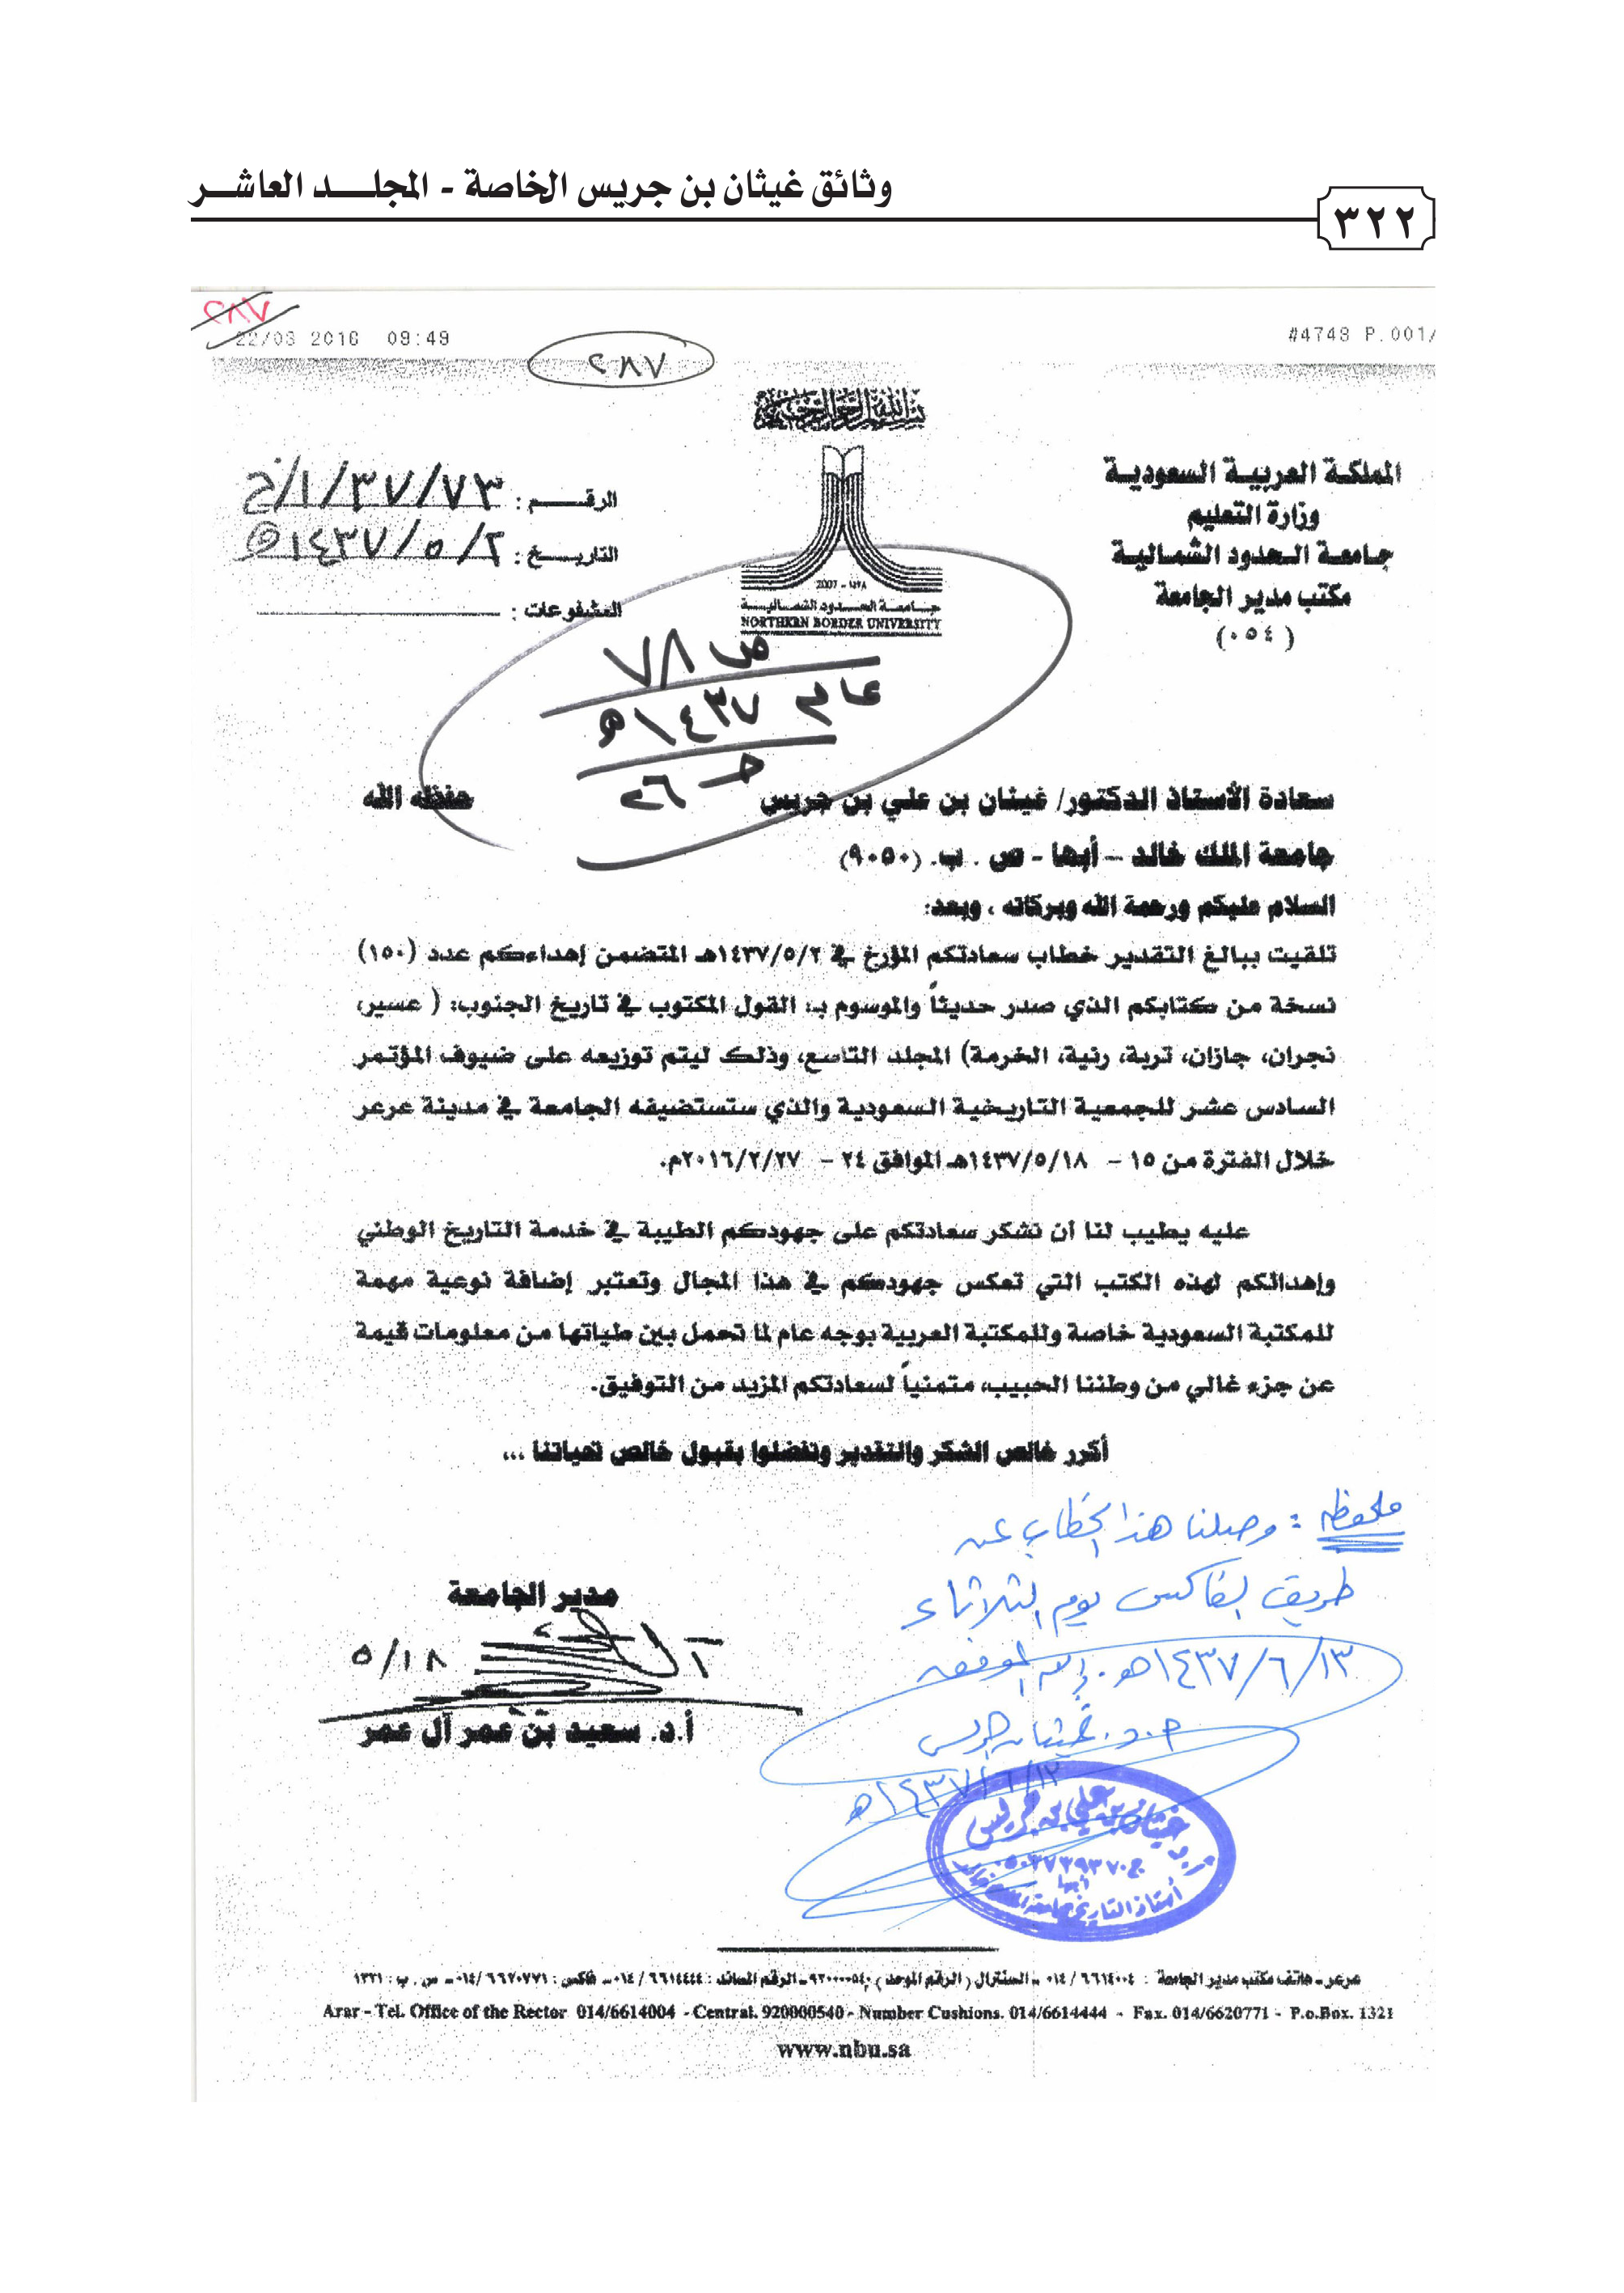 وثائق غيثان بن جريس الخاصة - المجلد العاشر
٣٢٢
٢٨٧
22/03 2016 09:49
#4743 P.001/
٢٨٧
بسم الله الرحمن الرحيم
المملكة العربية السعودية
وزارة التعليم
جامعة الحدود الشمالية
مكتب مدير الجامعة
(٠٥٤)
الرقم : ٧٣/٣٧/١/خ
التاريخ : ١٤٣٧/٥/٢هـ
المشفوعات :
2007 - ١٤٢٨
جامعة الحدود الشمالية
NORTHERN BORDER UNIVERSITY
ص ٧٨
عام ١٤٣٧هـ
حـ ٢٦
سعادة الأستاذ الدكتور/ غيثان بن علي بن جريس حفظه الله
جامعة الملك خالد – أبها - ص . ب. (٩٠٥٠)
السلام عليكم ورحمة الله وبركاته ، وبعد:
تلقيت ببالغ التقدير خطاب سعادتكم المؤرخ في ١٤٣٧/٥/٢هـ المتضمن إهداءكم عدد (١٥٠)
نسخة من كتابكم الذي صدر حديثاً والموسوم بـ: القول المكتوب في تاريخ الجنوب: ( عسير،
نجران، جازان، تربة، رنية، الخرمة) المجلد التاسع، وذلك ليتم توزيعه على ضيوف المؤتمر
السادس عشر للجمعية التاريخية السعودية والذي ستستضيفه الجامعة في مدينة عرعر
خلال الفترة من ١٥ - ١٤٣٧/٥/١٨هـ الموافق ٢٤ - ٢٠١٦/٢/٢٧م.
عليه يطيب لنا أن نشكر سعادتكم على جهودكم الطيبة في خدمة التاريخ الوطني
وإهدائكم لهذه الكتب التي تعكس جهودكم في هذا المجال وتعتبر إضافة نوعية مهمة
للمكتبة السعودية خاصة وللمكتبة العربية بوجه عام لما تحمل بين طياتها من معلومات قيمة
عن جزء غالي من وطننا الحبيب، متمنياً لسعادتكم المزيد من التوفيق.
أكرر خالص الشكر والتقدير وتفضلوا بقبول خالص تحياتنا ...
ملحوظة : وصلنا هذا الخطاب عن
طريق الفاكس يوم الثلاثاء
١٤٣٧/٦/١٣هـ. والله الموفق
أ.د. غيثان جريس
١٤٣٧/٦/١٣هـ
مدير الجامعة
٥/١٨
أ.د. سعيد بن عمر آل عمر
أ.د غيثان بن علي بن جريس
ج.٠٥٠٣٧٣٩٣٧٠
أبها
أستاذ التاريخ بجامعة الملك خالد
عرعر ـ هاتف مكتب مدير الجامعة : ٠١٤/٦٦١٤٠٠٤ ـ السنترال ( الرقم الموحد ) ٩٢٠٠٠٠٥٤٠ ـ الرقم المساند : ٠١٤/٦٦١٤٤٤٤ ـ فاكس : ٠١٤/٦٦٢٠٧٧١ ـ ص . ب : ١٣٢١
Arar - Tel. Office of the Rector 014/6614004 - Central. 920000540 - Number Cushions. 014/6614444 - Fax. 014/6620771 - P.o.Box. 1321
www.nbu.sa